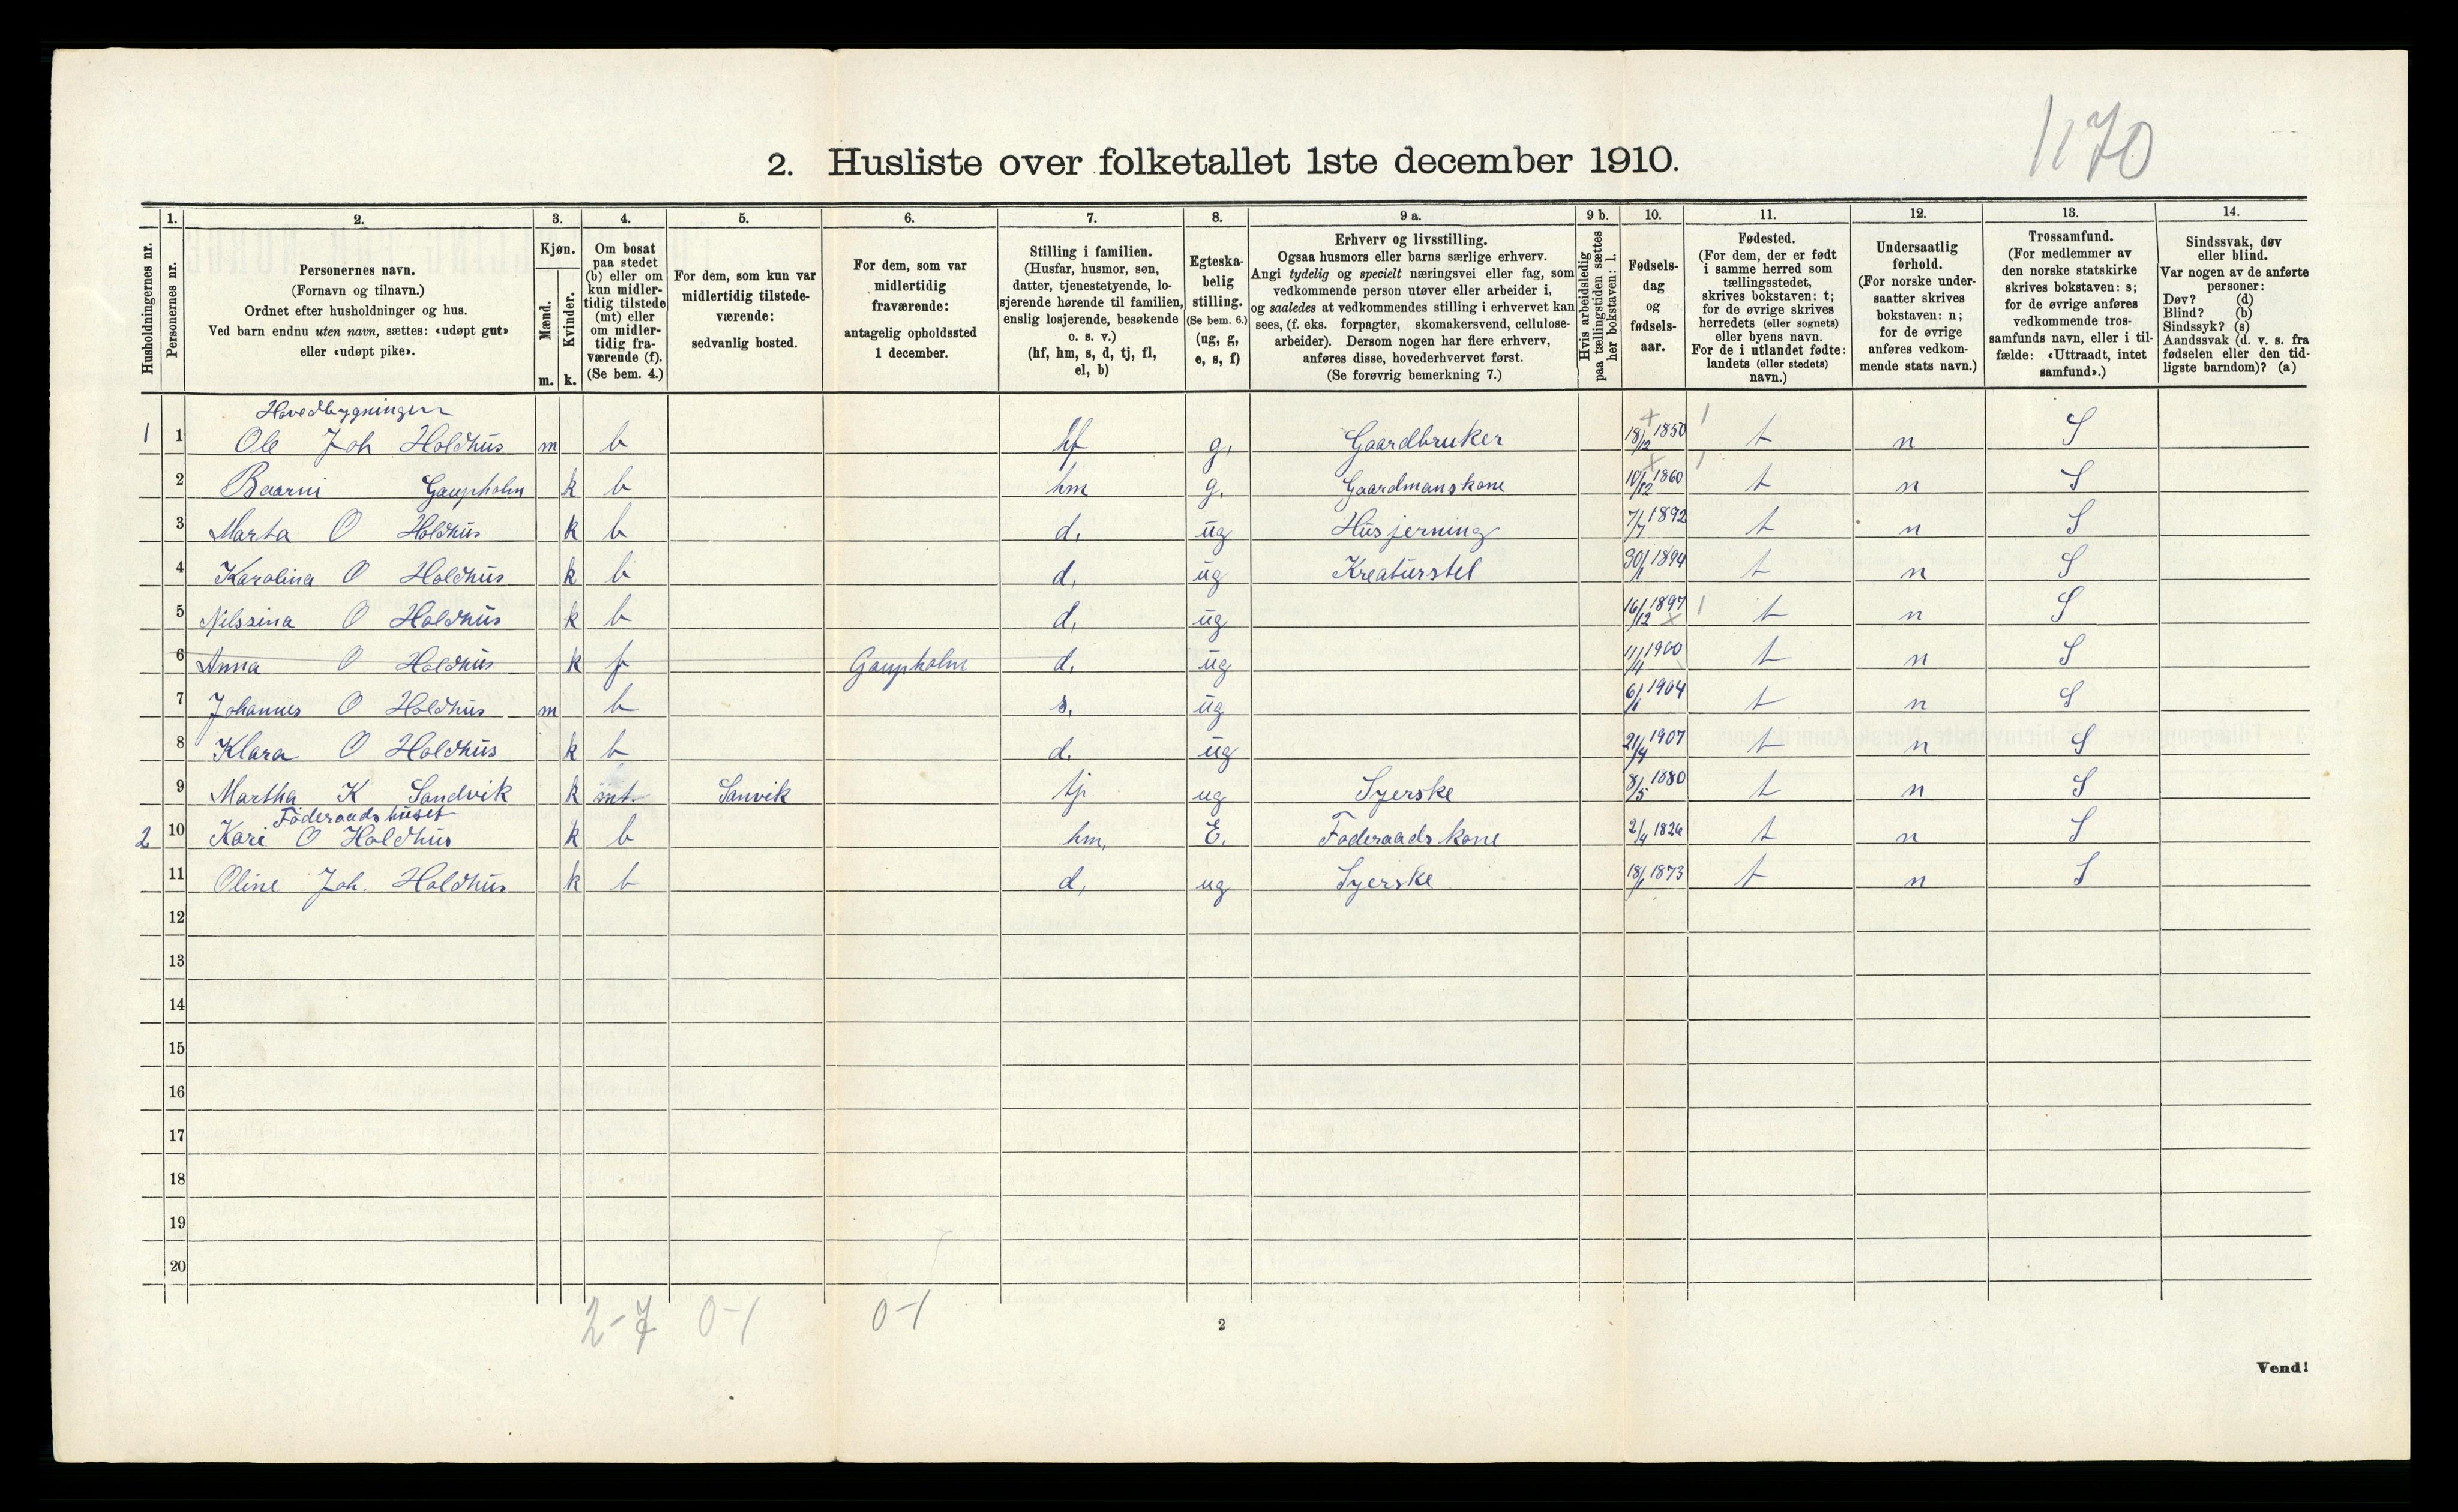 1170
2. Husliste over folketallet 1ste december 1910.
Husholdningernes nr.
1. Personernes nr.
2. Personernes navn. (Fornavn og tilnavn.) Ordnet efter husholdninger og hus. Ved barn endnu uten navn, sættes: «udøpt gut» eller «udøpt pike».
3. Kjøn. Mænd. m. Kvinder. k.
4. Om bosat paa stedet (b) eller om kun midler- tidig tilstede (mt) eller om midler- tidig fra- værende (f). (Se bem. 4.)
5. For dem, som kun var midlertidig tilstede- værende: sedvanlig bosted.
6. For dem, som var midlertidig fraværende: antagelig opholdssted 1 december.
7. Stilling i familien. (Husfar, husmor, søn, datter, tjenestetyende, lo- sjerende hørende til familien, enslig losjerende, besøkende o. s. v.) (hf, hm, s, d, tj, fl, el, b)
8. Egteska- belig stilling. (Se bem. 6.) (ug, g, e, s, f)
9 a. Erhverv og livsstilling. Ogsaa husmors eller barns særlige erhverv. Angi tydelig og specielt næringsvei eller fag, som vedkommende person utøver eller arbeider i, og saaledes at vedkommendes stilling i erhvervet kan sees, (f. eks. forpagter, skomakersvend, cellulose- arbeider). Dersom nogen har flere erhverv, anføres disse, hovederhvervet først. (Se forøvrig bemerkning 7.)
9 b. Hvis arbeidsledig paa tællingstiden sættes her bokstaven: l.
10. Fødsels- dag og fødsels- aar.
11. Fødested. (For dem, der er født i samme herred som tællingsstedet, skrives bokstaven: t; for de øvrige skrives herredets (eller sognets) eller byens navn. For de i utlandet fødte: landets (eller stedets) navn.)
12. Undersaatlig forhold. (For norske under- saatter skrives bokstaven: n; for de øvrige anføres vedkom- mende stats navn.)
13. Trossamfund. (For medlemmer av den norske statskirke skrives bokstaven: s; for de øvrige anføres vedkommende tros- samfunds navn, eller i til- fælde: «Uttraadt, intet samfund».)
14. Sindssvak, døv eller blind. Var nogen av de anførte personer: Døv? (d) Blind? (b) Sindssyk? (s) Aandssvak (d. v. s. fra fødselen eller den tid- ligste barndom)? (a)
Hovedbygningen
1 1 Ole Joh Holdhus m b hf g. Gaardbruker 18/12 1850 t n S
2 Baarni Gaupholm k b hm g. Gaardmanskone 10/12 1860 t n S
3 Marta O Holdhus k b d. ug Husjerning 7/7 1892 t n S
4 Karolina O Holdhus k b d. ug Kreaturstel 30/1 1894 t n S
5 Nilssina O Holdhus k b d. ug 16/12 1897 t n S
6 Anna O Holdhus k f Gaupholm d. ug 11/11 1900 t n S
7 Johannes O Holdhus m b s. ug 6/1 1904 t n S
8 Klara O Holdhus k b d. ug 21/4 1907 t n S
9 Martha K Sandvik k mt Sanvik tj ug Syerske 8/5 1880 t n S
Føderaadshuset
2 10 Kari O Holdhus k b hm. E. Føderaadskone 2/4 1826 t n S
11 Oline Joh. Holdhus k b d. ug Syerske 18/1 1873 t n S
12
13
14
15
16
17
18
19
20
2-7 0-1 0-1
2
Vend!